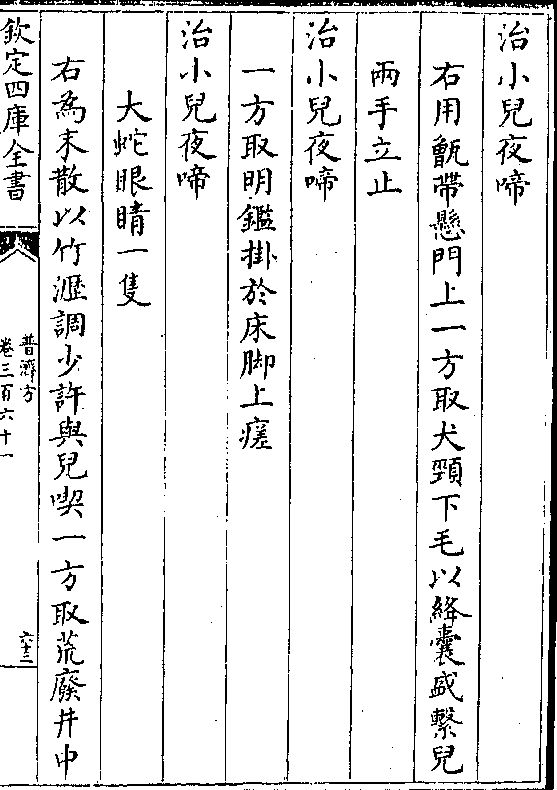 治小兒夜啼
右用甑帶懸門上一方取犬頸下毛以絳囊盛繫兒
兩手立止
治小兒夜啼
一方取明鑑掛於床脚上瘥
治小兒夜啼
大蛇眼睛一隻
右為末散以竹瀝調少許與兒喫一方取荒廢井中
欽定四庫全書
普濟方
卷三百六十一
六十三